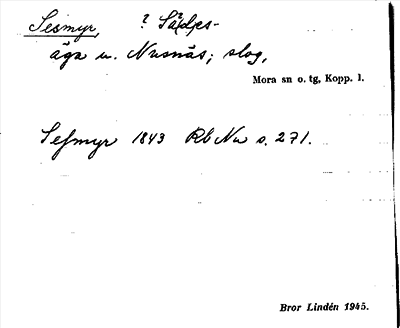 Sesmyr, ? Sädes-
äga u. Nusnäs; slog,
Mora sn o. tg, Kopp. l.
Sefmyr 1843 Rb Nu s. 271.
Bror Lindén 1945.